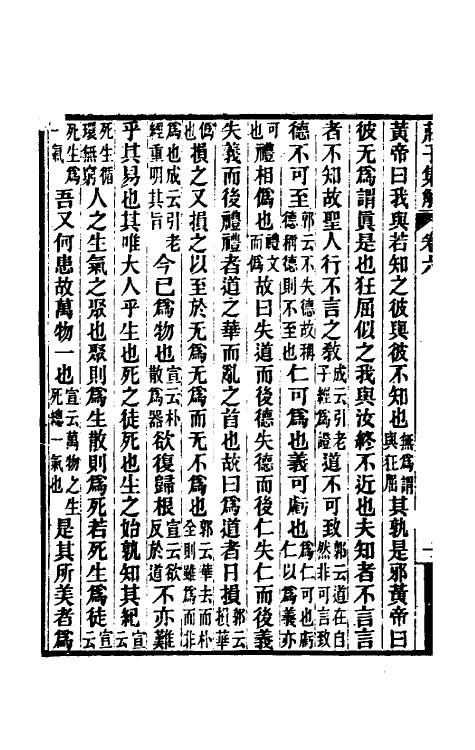 莊子集解 卷六 一
黃帝曰我與若知之彼與彼不知也無為謂與狂屈其孰是邪黃帝曰
彼无為謂眞是也狂屈似之我與汝終不近也夫知者不言言
者不知故聖人行不言之敎成云引老子經為證道不可致郭云道在自然非可言致
德不可至郭云不失德故稱德稱德則不至也仁可為也義可虧也為仁可也虧仁以為義亦
可也禮相偽也禮文而偽故曰失道而後德失德而後仁失仁而後義
失義而後禮禮者道之華而亂之首也故曰為道者日損郭云損華
偽也損之又損之以至於无為无為而无不為也郭云華去而朴全則雖為而非
為也成云引老經重明其旨今已為物也宣云朴散為器欲復歸根宣云欲反於道不亦難
乎其易也其唯大人乎生也死之徒死也生之始孰知其紀宣云
死生循環無窮人之生氣之聚也聚則為生散則為死若死生為徒宣云
死生為一氣吾又何患故萬物一也宣云萬物之生死總一氣也是其所美者為